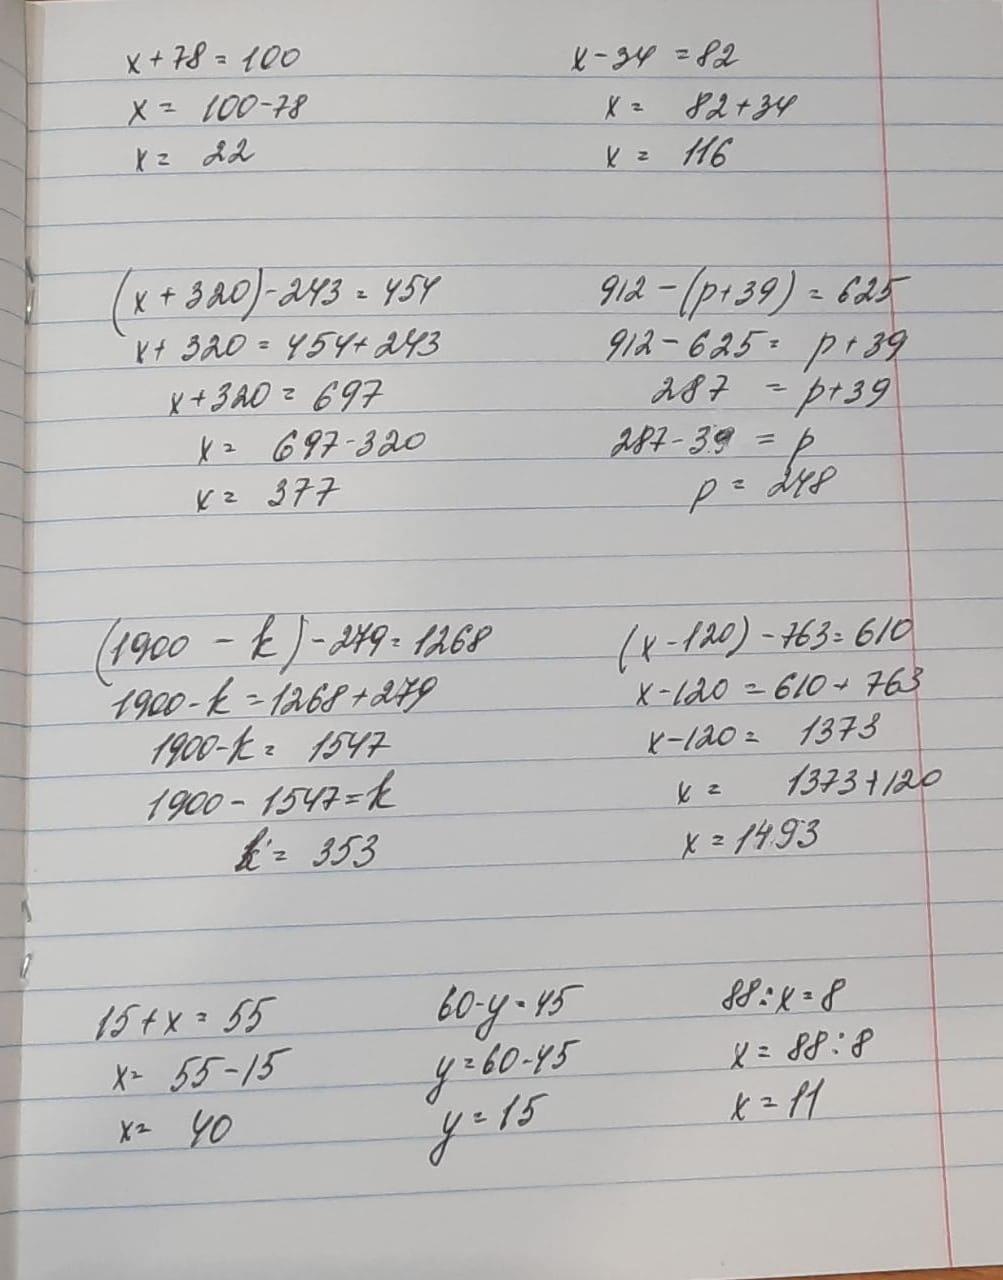 x + 78 = 100
x = 100 - 78
x = 22
x - 34 = 82
x = 82 + 34
x = 116
(x + 320) - 243 = 454
x + 320 = 454 + 243
x + 320 = 697
x = 697 - 320
x = 377
912 - (p + 39) = 625
912 - 625 = p + 39
287 = p + 39
287 - 39 = p
p = 248
(1900 - k) - 279 = 1268
1900 - k = 1268 + 279
1900 - k = 1547
1900 - 1547 = k
k = 353
(x - 120) - 763 = 610
x - 120 = 610 + 763
x - 120 = 1373
x = 1373 + 120
x = 1493
15 + x = 55
x = 55 - 15
x = 40
60 - y = 45
y = 60 - 45
y = 15
88 : x = 8
x = 88 : 8
x = 11